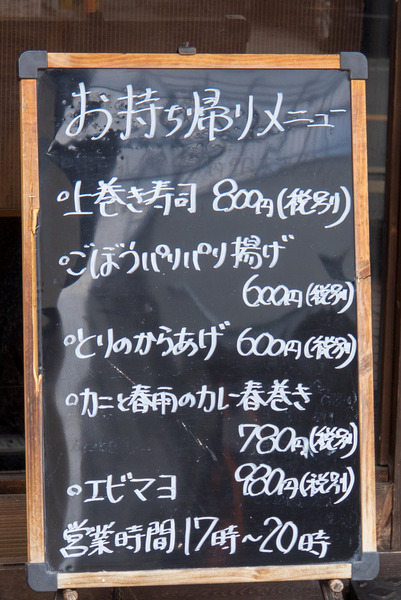 お持ち帰りメニュー
○上巻き寿司 800円(税別)
○ごぼうパリパリ揚げ
600円(税別)
○とりのからあげ 600円(税別)
○カニと春雨のカレー春巻き
780円(税別)
○エビマヨ 980円(税別)
営業時間 17時〜20時